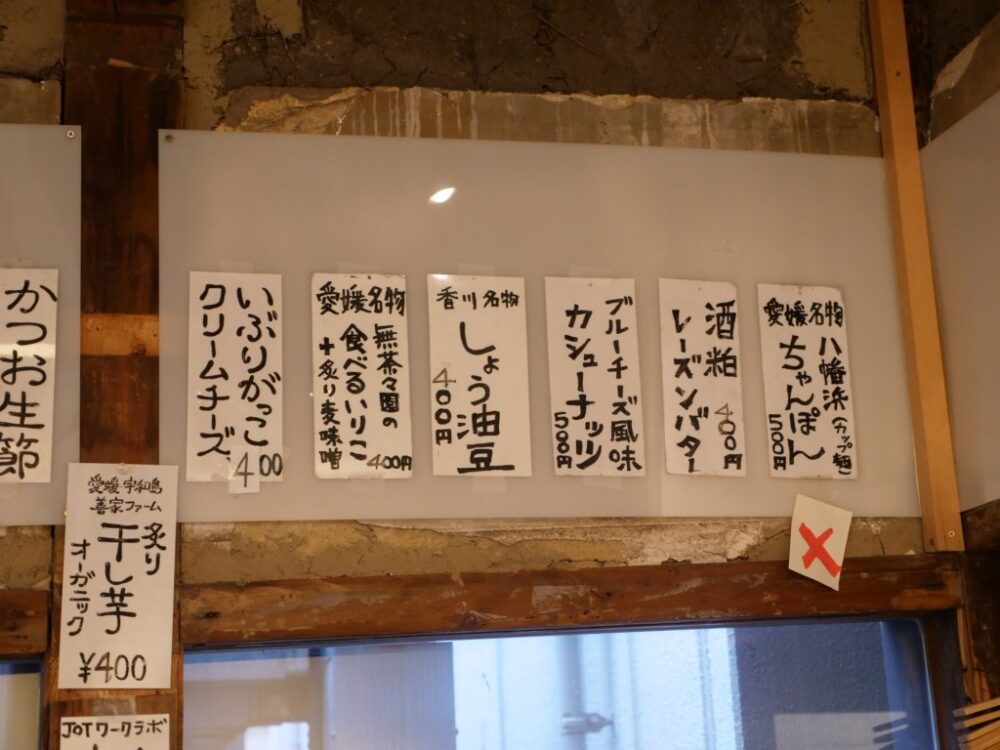 愛媛名物
八幡浜(カップ麺)
ちゃんぽん
500円
酒粕
レーズンバター
400円
ブルーチーズ風味
カシューナッツ
500円
香川名物
しょう油豆
400円
愛媛名物
無茶々園の
食べるいりこ
+炙り麦味噌
400円
いぶりがっこ
クリームチーズ
400
かつお生節
愛媛・宇和島
善家ファーム
炙り
干し芋
オーガニック
¥400
JOTワークラボ